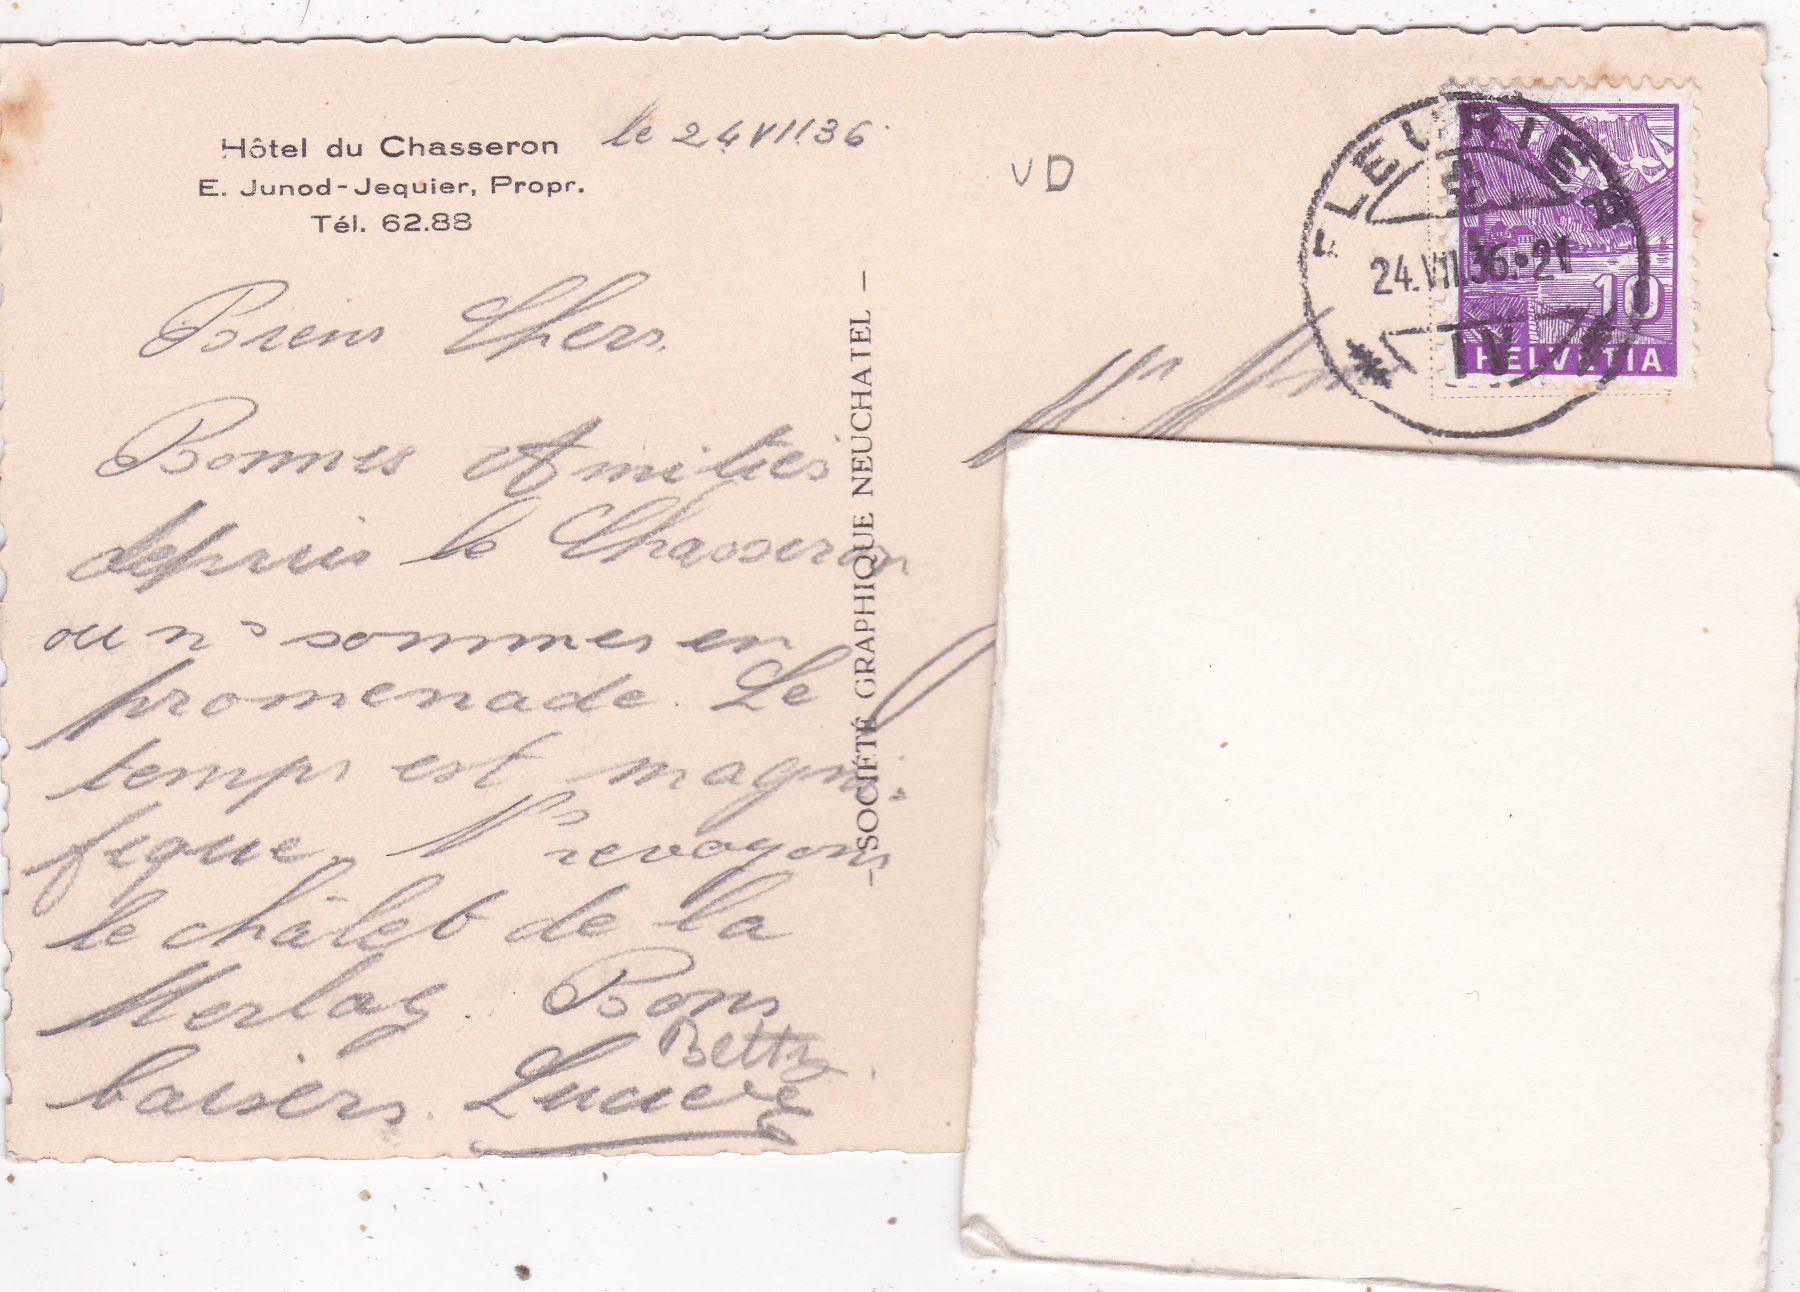 Hôtel du Chasseron
E. Junod-Jequier, Propr.
Tél. 62.88
le 24 VII 36
VD
FLEURIER
24.VII.36.-21
10
HELVETIA
Biens Chers.
Bonnes Amitiés
depuis le Chasseron
ou ns sommes en
promenade. Le
temps est magni-
fique. Ns revoyons
le châlet de la
Bons
baisers. Lucie
Betty
-SOCIÉTÉ GRAPHIQUE NEUCHATEL-